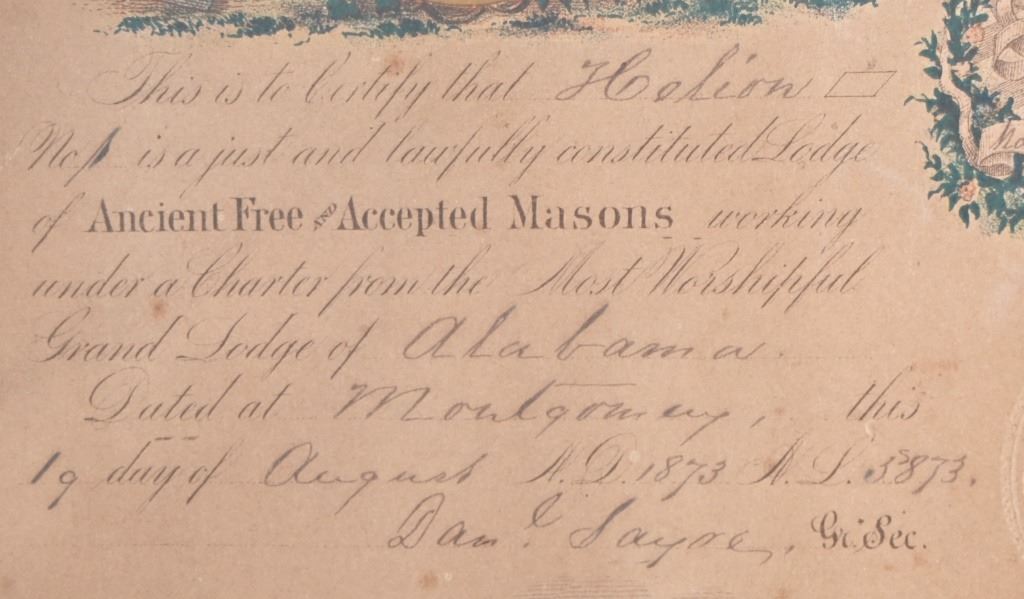 This is to Certify that Helion
No 1 is a just and lawfully constituted Lodge
of Ancient Free AND Accepted Masons working
under a Charter from the Most Worshipful
Grand Lodge of Alabama.
Dated at Montgomery, this
19 day of August A. D. 1873 A. L. 5873.
Danl. Sayre, Gr. Sec.